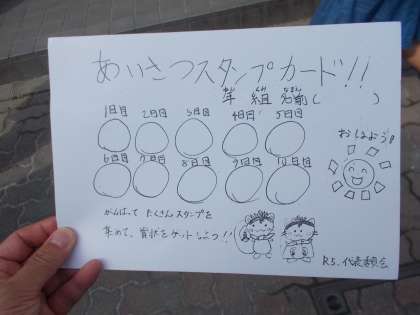 あいさつスタンプカード!!
年 組 名前( )
ねん くみ なまえ
1日目 2日目 3日目 4日目 5日目
おはよう!
6日目 7日目 8日目 9日目 10日目
がんばって たくさんスタンプを
集めて、賞状をゲットしよう!!
R5.代表委員会